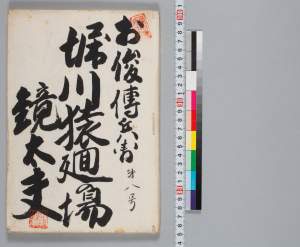 お俊傳兵衛
堀川猿廻し場
鏡太夫
第八号